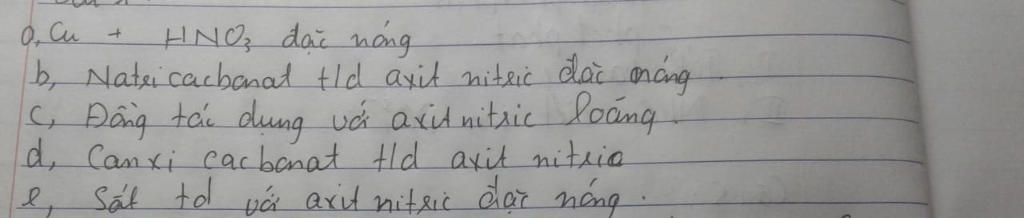 a, Cu + HNO3 đặc nóng
b, Natri cacbonat t/d axit nitric đặc nóng
c, Đồng tác dụng với axit nitric loãng.
d, Canxi cacbonat t/d axit nitric
e, Sắt td với axit nitric đặc nóng.